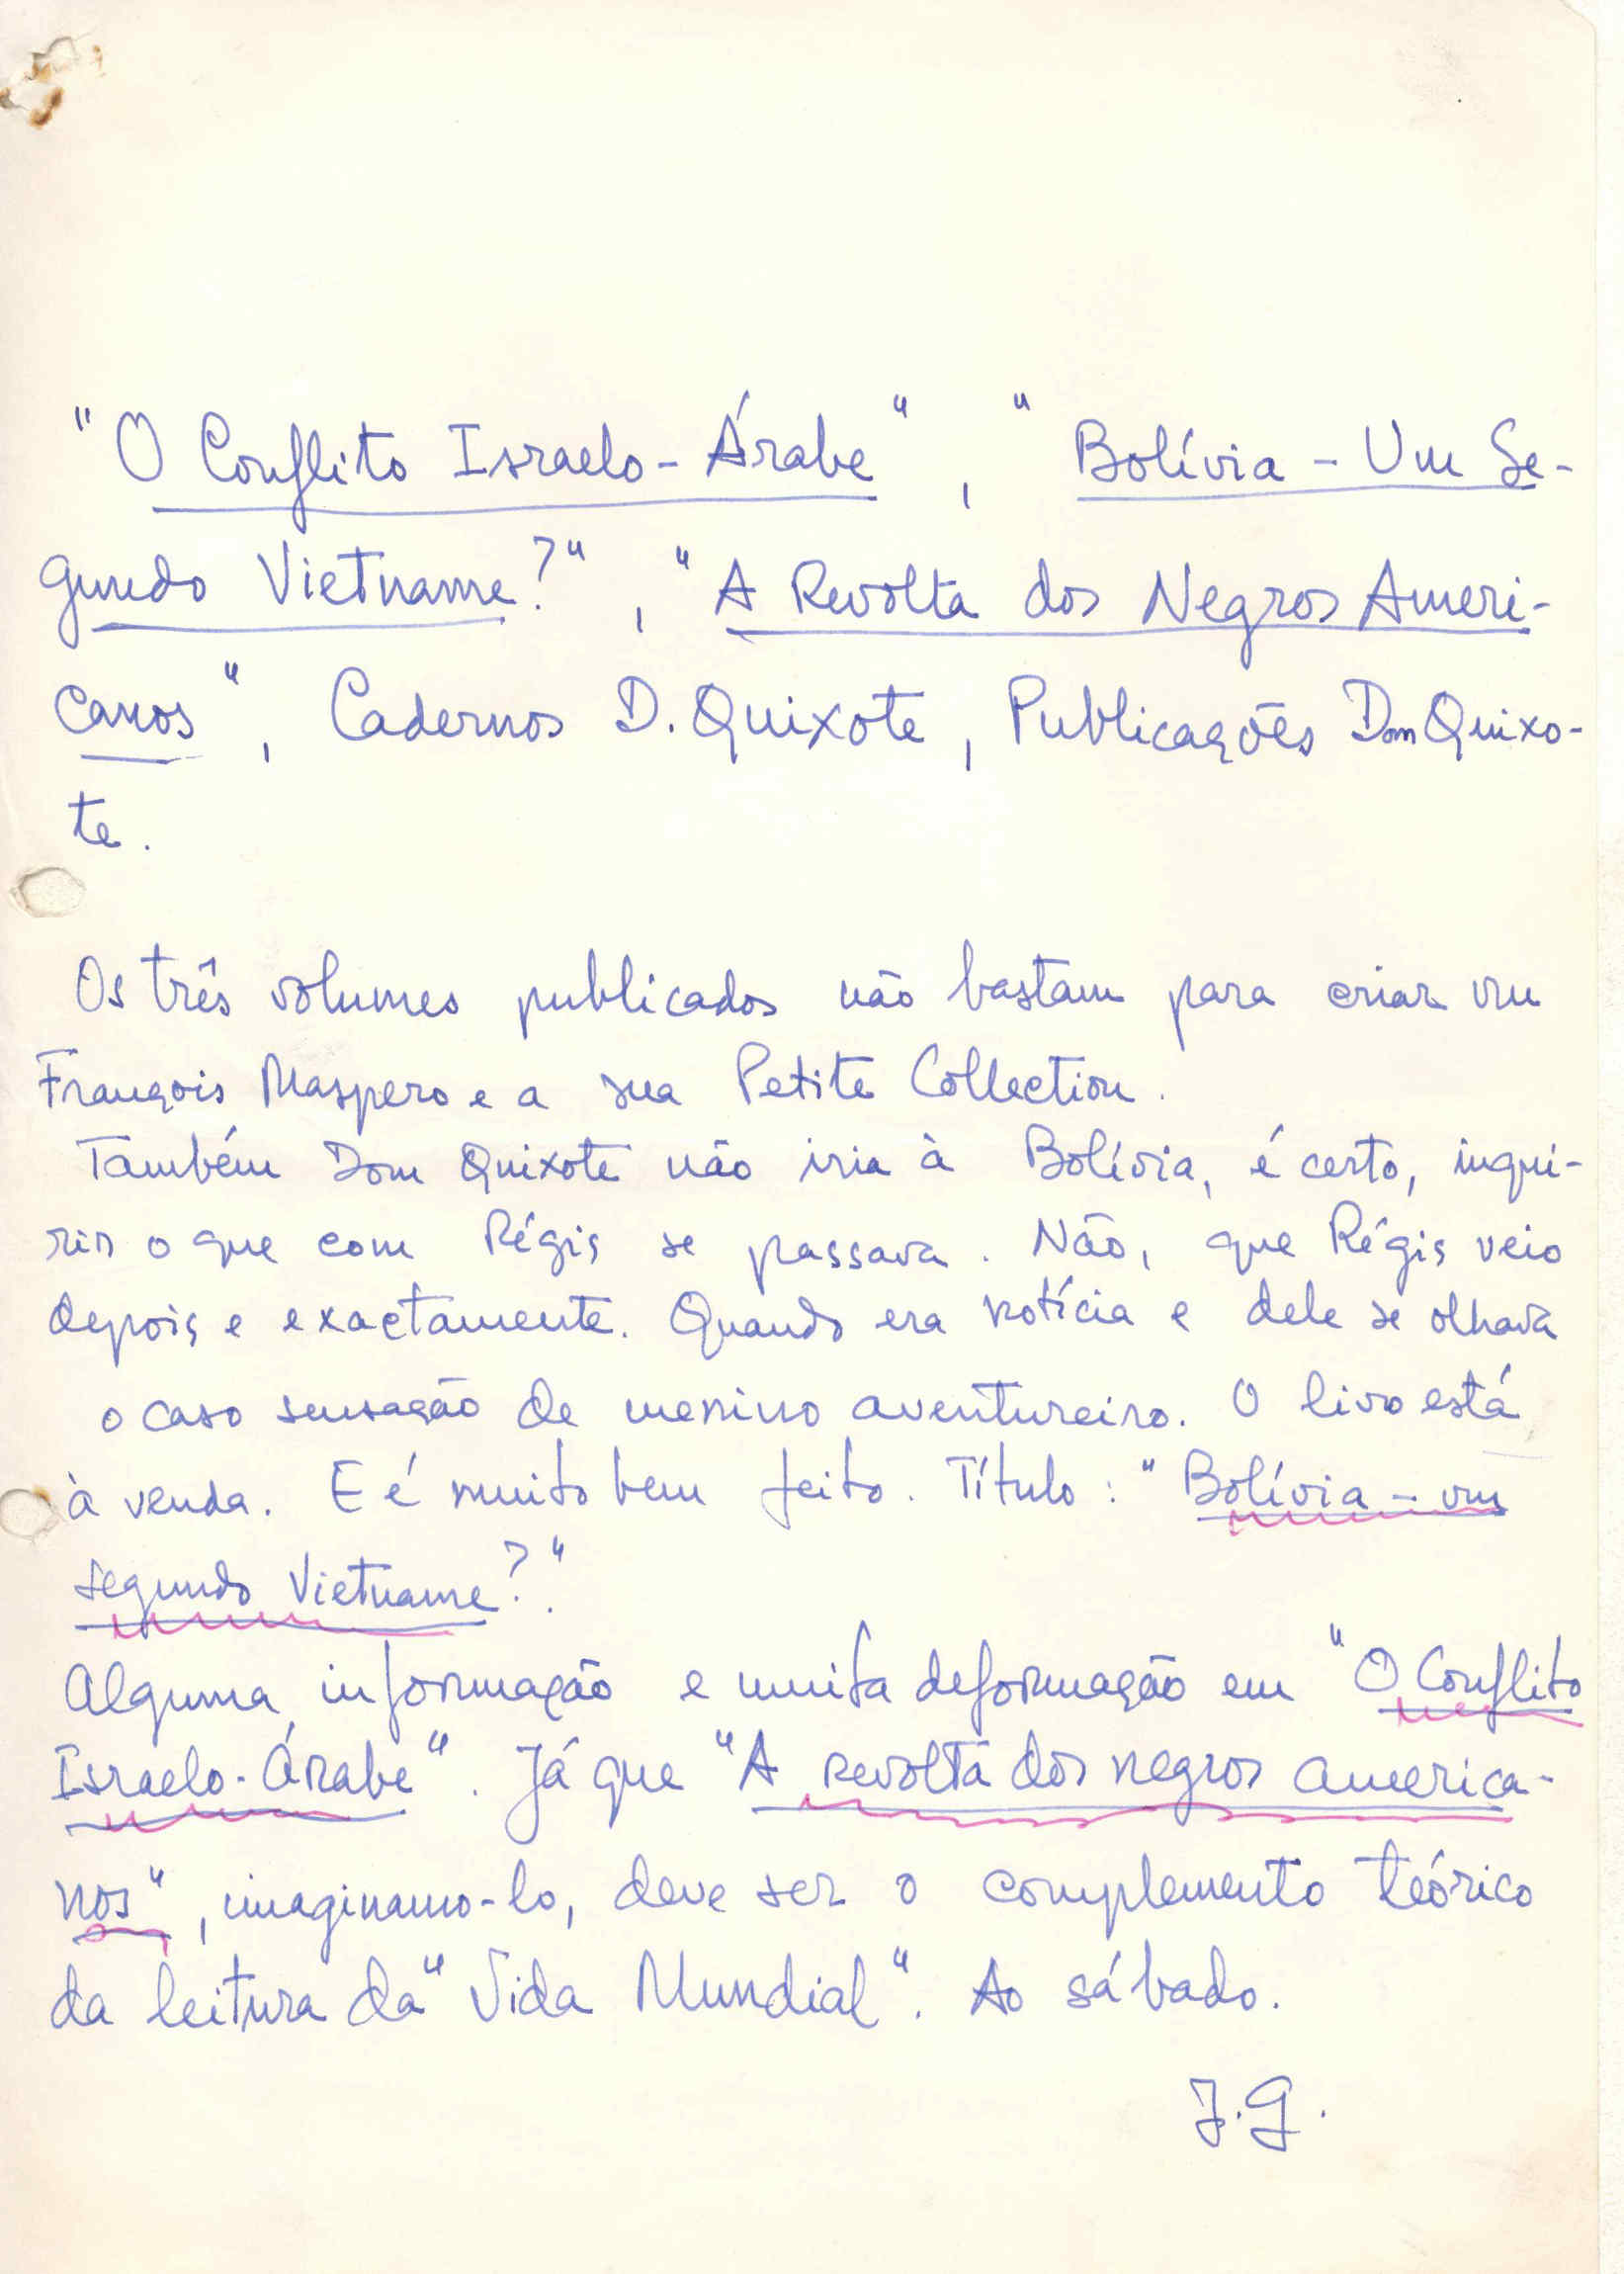 "O Conflito Israelo-Árabe", "Bolívia - Um Se-
gundo Vietname?", "A Revolta dos Negros Ameri-
canos", Cadernos D. Quixote, Publicações Dom Quixo-
te.
Os três volumes publicados não bastam para criar um
François Maspero e a sua Petite Collection.
Também Dom Quixote não iria à Bolívia, é certo, inqui-
rir o que com Régis se passava. Não, que Régis veio
depois e exactamente. Quando era notícia e dele se olhava
o caso sensação de menino aventureiro. O livro está
à venda. E é muito bem feito. Título: "Bolívia - um
segundo Vietname?".
Alguma informação e muita deformação em "O Conflito
Israelo-Árabe". Já que "A revolta dos negros america-
nos", imaginamo-lo, deve ser o complemento teórico
da leitura da "Vida Mundial". Ao sábado.
J.G.